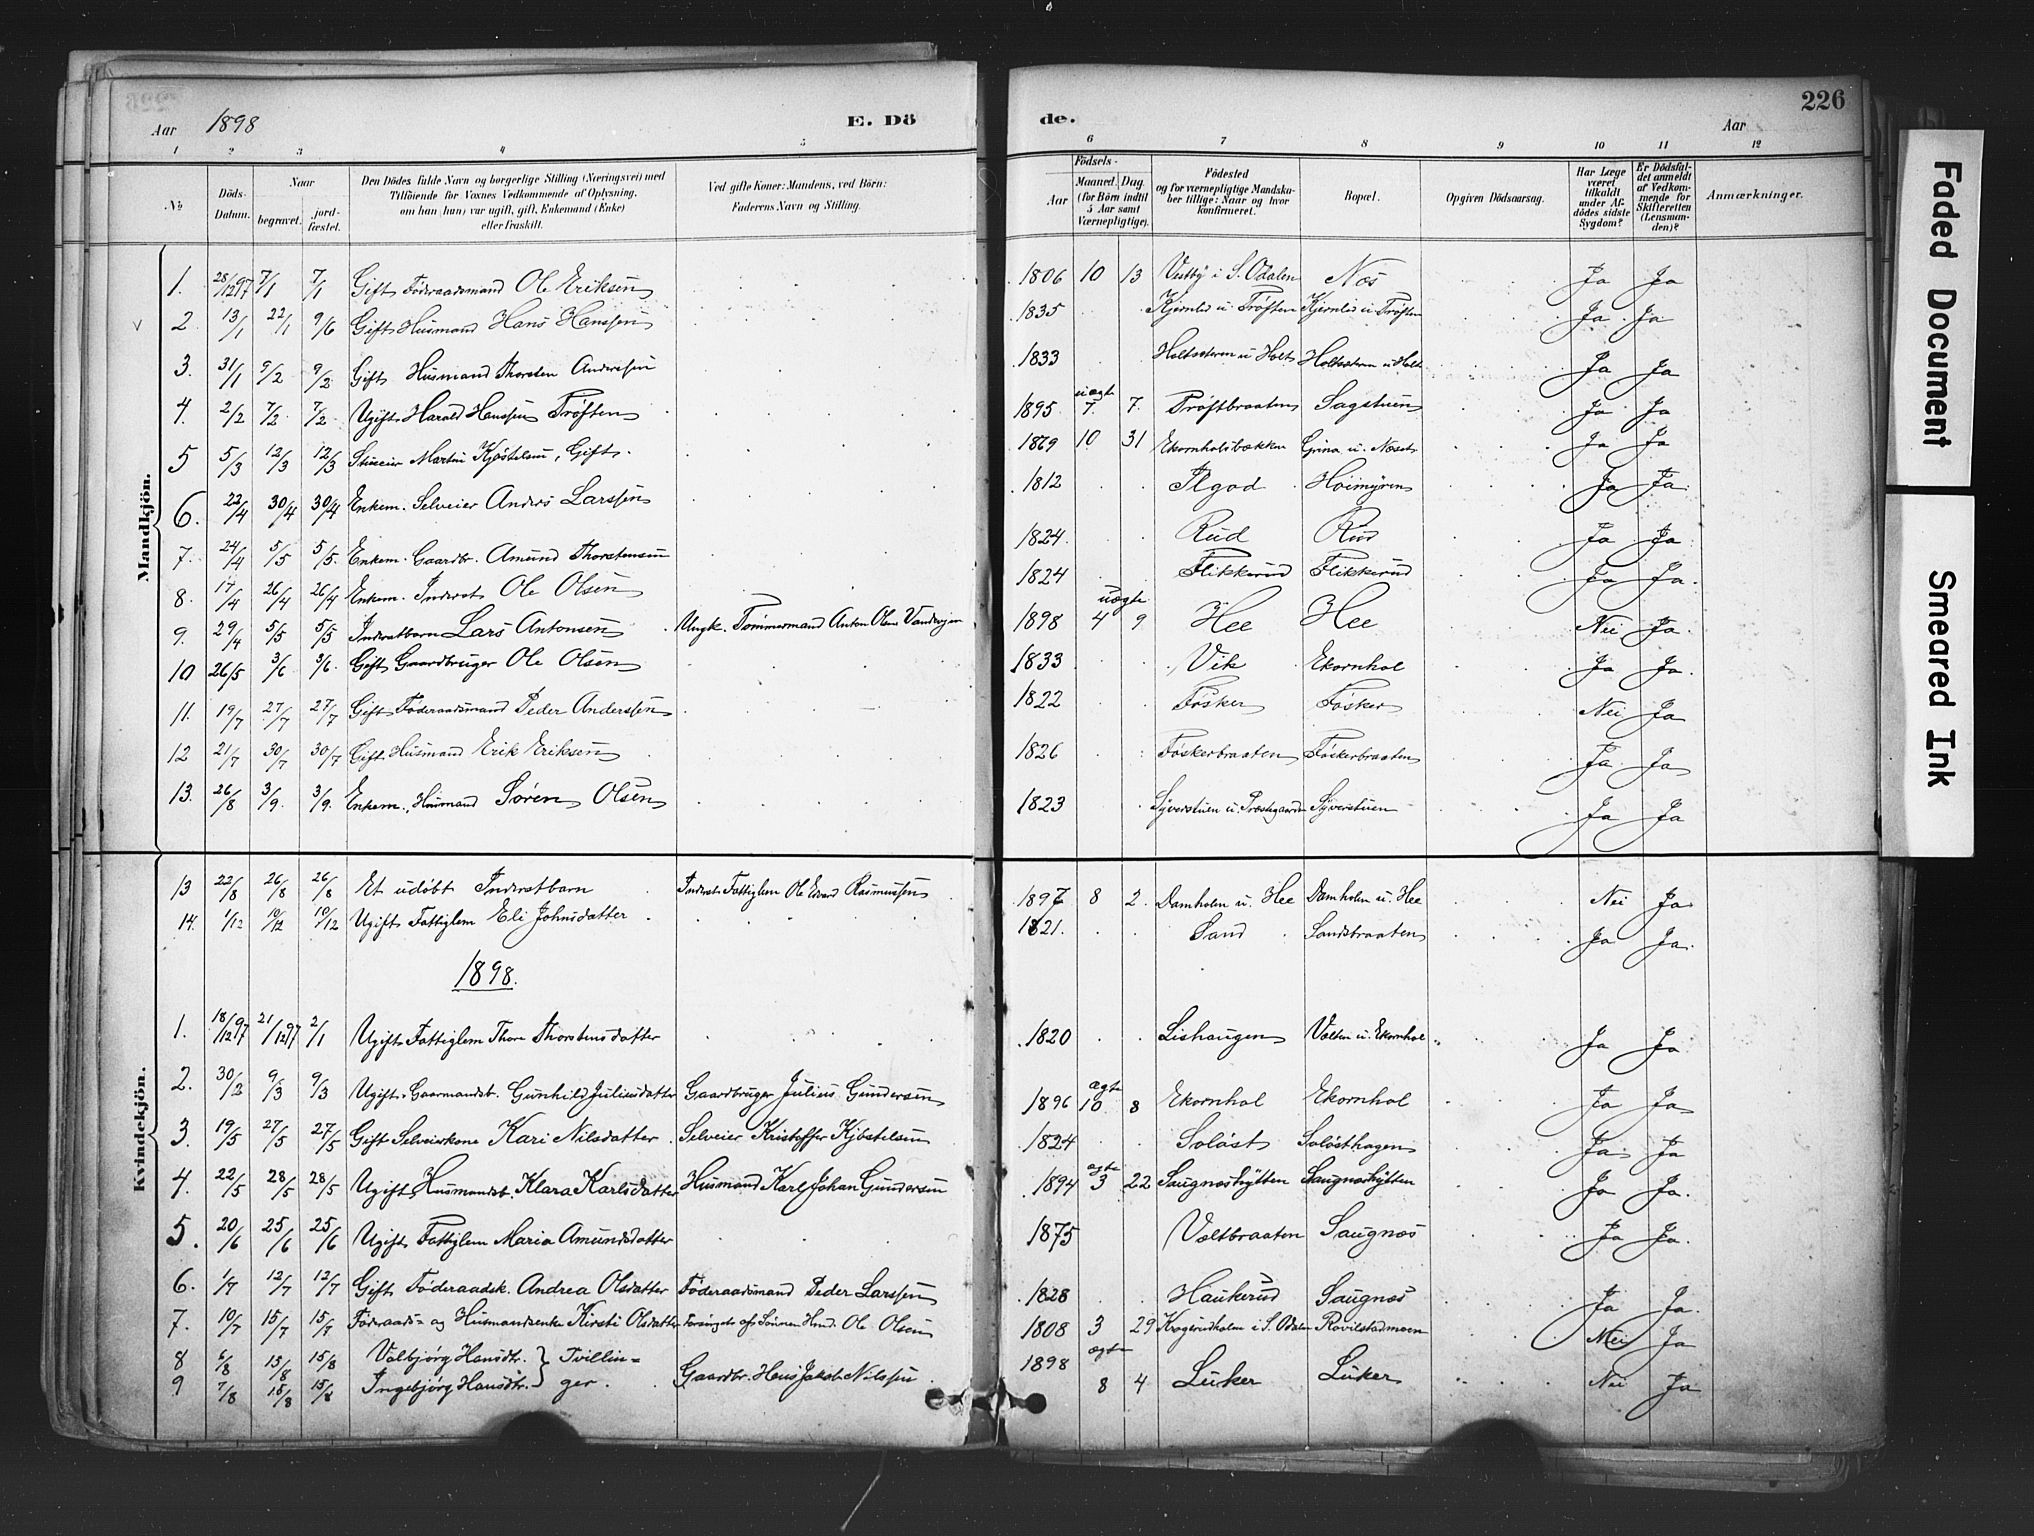 226
Aar 1898 E. Dö de. Aar
1 2 3 4 5 6 7 8 9 10 11 12
№
Döds-Datum.
Naar
begravet.
jord-fæstet.
Den Dödes fulde Navn og borgerlige Stilling (Næringsvei) med
Tilföiende for Voxnes Vedkommende af Oplysning,
om han (hun) var ugift, gift, Enkemand (Enke)
eller fraskilt.
Ved gifte Koner: Mandens, ved Börn:
Faderens Navn og Stilling.
Födsels-
Aar
Maaned. Dag.
(for Börn indtil
5 Aar samt
Værnepligtige).
Födested
og for værnepligtige Mandska-
ber tillige: Naar og hvor
konfirmeret.
Bopæl.
Opgiven Dödsaarsag.
Har Læge
været
tilkaldt
under Af-
dödes sidste
Sygdom?
Er Dödsfal-
det anmeldt
af Vedkom-
mende for
Skifteretten
(Lensman-
den)?
Anmærkninger.
Mandkjön.
1. 28/12 97 7/1 7/1 Gift Föderaadsmand Ole Eriksen 1806 10 13 Vestby i S. Odalen Næs Ja Ja
2. 13/1 22/1 9/6 Gift Husmand Hans Hanssen 1835 Kjernlid u. Tröften Kjernlid u. Tröften Ja Ja
3. 31/1 9/2 9/2 Gift Husmand Thorsten Anderssen 1833 Holtsæteren u. Holt Holtsæteren u. Holt Ja Ja
4. 2/2 7/2 7/2 Ugift Harald Hanssen Tröften 1895 uægte 7 7 Tröftbraaten Sagstuen Ja Ja
5 5/3 12/3 12/3 Martin Kjöstelsen, Gift 1869 10 31 Ekornholsbækken Grina u. Næset Ja Ja
6. 22/4 30/4 30/4 Enkem. Selveier Anders Larssen 1812 Ilgod Höimyren Ja Ja
7. 24/4 5/5 5/5 Enkem. Gaardbr. Amund Thorstensen 1824 Rud Rud Ja Ja
8. 17/4 26/4 26/4 Enkem. Inderst Ole Olsen 1824 Flikkerud Flikkerud Ja Ja
9. 29/4 5/5 5/5 Inderstbarn Lars Antonsen Ungk. Tömmermand Anton Olsen 1898 uægte 4 9 Hee Hee Nei Ja
10 26/5 3/6 3/6 Gift Gaardbruger Ole Olsen 1833 Vik Ekornhol Ja Ja
11. 19/7 27/7 27/7 Gift Föderaadsmand Peder Anderssen 1822 Fösker Fösker Nei Ja
12 21/7 30/7 30/7 Gift Husmand Erik Eriksen 1826 Föskerbraaten Föskerbraaten Ja Ja
13. 26/8 3/9 3/9. Enkem., Husmand Sören Olsen 1823 Syverstuen u. Præstegaarden Syverstuen Ja Ja
13 22/8 26/8 26/8 Et udöbt Inderstbarn Inderst Fattiglem Ole Edvard Rasmussen 1897 8 2. Damholen u. Hee Damholen u. Hee Nei Ja
14. 1/12 10/12 10/12 Ugift Fattiglem Eli Johnsdatter 1821. Sand Sandsbraaten Ja Ja
1898.
Kvindekjön.
1. 18/12 97 21/12 97 2/1 Ugift Fattiglem Thore Thorstensdatter 1820 Lishaugen Valten u. Ekornhol Ja Ja
2. 30/2 9/3 9/3 Ugift Gaarmandsb. Gunhild Juliusdatter Gaardbruger Julius Gundersen 1896 ægte 10 8 Ekornhol Ekornhol Ja Ja
3. 19/5 27/5 27/5 Gift Selveierkone Kari Nilsdatter Selveier Kristoffer Kjöstelsen 1824 Solöst Solösthagen Ja Ja
4. 22/5 28/5 28/5 Ugift Husmandsb. Klara Karlsdatter Husmand Karl Johan Gundersen 1894 ægte 3 22 Saugnæshytten Saugnæshytten Ja Ja
5. 20/6 25/6 25/6 Ugift Fattiglem Maria Amundsdatter 1875 Valtbraaten Saugnæs Ja Ja
6. 1/7 12/7 12/7 Gift Föderaadsk. Andrea Olsdatter Föderaadsmand Peder Larssen 1828 Haukerud Saugnæs Ja Ja
7. 10/7 15/7 15/7 Föderaads- og Husmandsenke Kirsti Olsdatter Forsörget af Sönnen Hmd. Ole Olsen 1808 3 29 i S. Odalen Nei Ja
8 6/8 15/8 15/8 Valbjörg Hansdtr. } Tvillin- 1898 ægte
9 7/8 15/8 15/8 Ingebjörg Hansdtr. } ger. Gaardbr. Hans Jakob Nilssen 8 4 Luker Luker Nei Ja
Faded Document
Smeared Ink